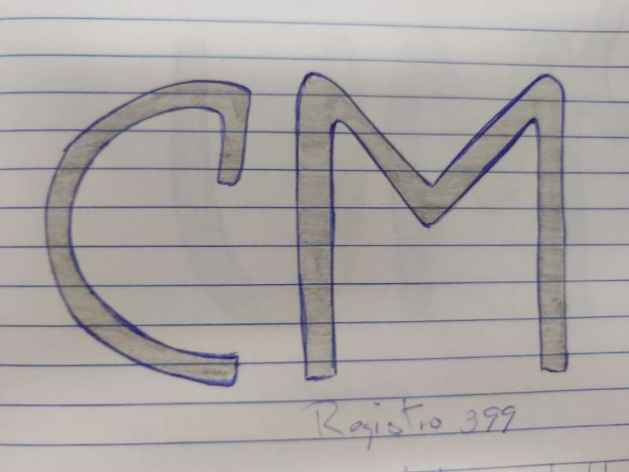 CM
Registro 399